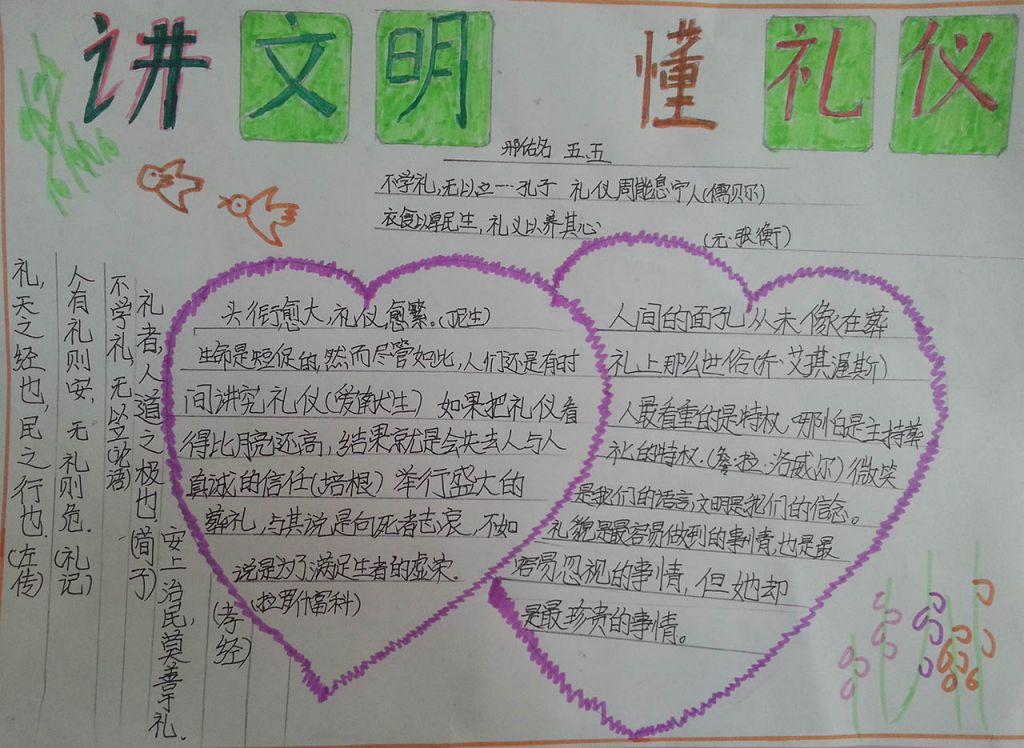 讲文明 懂礼仪
邢佑名 五.五
不学礼,无以立……孔子 礼仪周能息宁人(儒贝尔)
衣食以厚民生,礼义以养其心 (元·张衡)
礼,天之经也,民之行也.(左传)
人有礼则安,无礼则危.(礼记)
不学礼,无以立(论语)
礼者,人道之极也.(荀子)
安上治民,莫善于礼.
(孝经)
头衔愈大,礼仪愈繁。(尼生)
生命是短促的,然而尽管如此,人们还是有时
间讲究礼仪(爱献生) 如果把礼仪看
得比月亮还高,结果就是会失去人与人
真诚的信任(培根) 举行盛大的
葬礼,与其说是向死者志哀,不如
说是为了满足生者的虚荣.
(拉罗什富科)
人间的面孔从未像在葬
礼上那么世俗(乔·艾琪渥斯)
人最看重的是特权,哪怕是主持葬
礼的特权.(詹·拉·洛威尔)微笑
是我们的语言,文明是我们的信念。
礼貌是最容易做到的事情,也是最
容易忽视的事情,但她却
是最珍贵的事情。